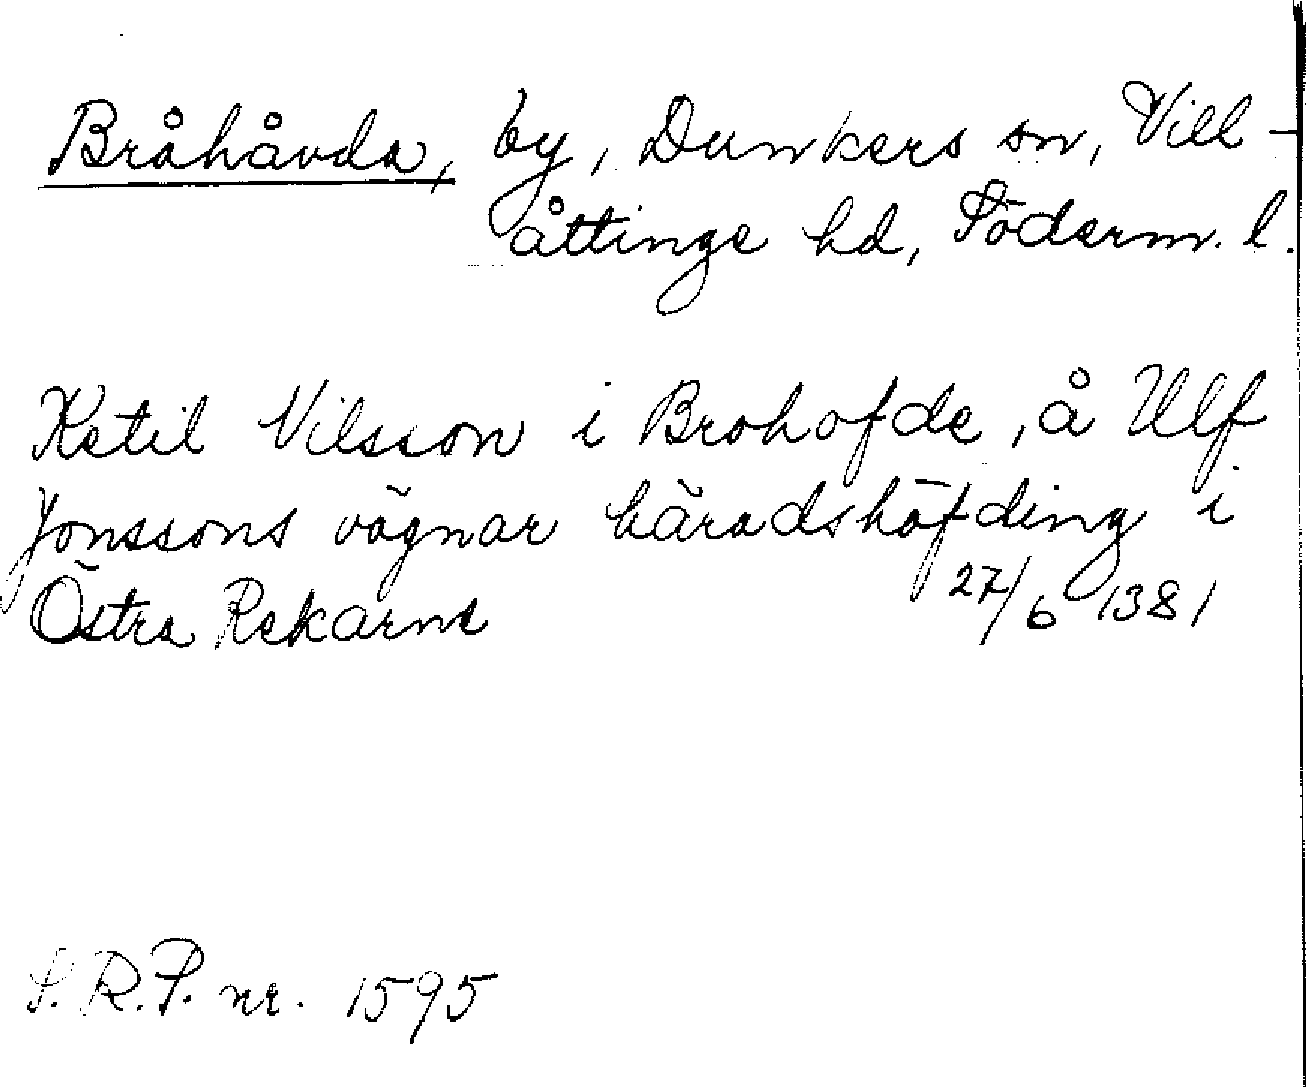 Bråhåvda, by, Dunkers sn, Vill-
åttinge hd, Söderm. l.
Ketil Nilsson i Brohofde, å Ulf
Jonssons vägnar häradshöfding i
Östra Rekarne 27/6 1381
S.R.P. nr. 1595